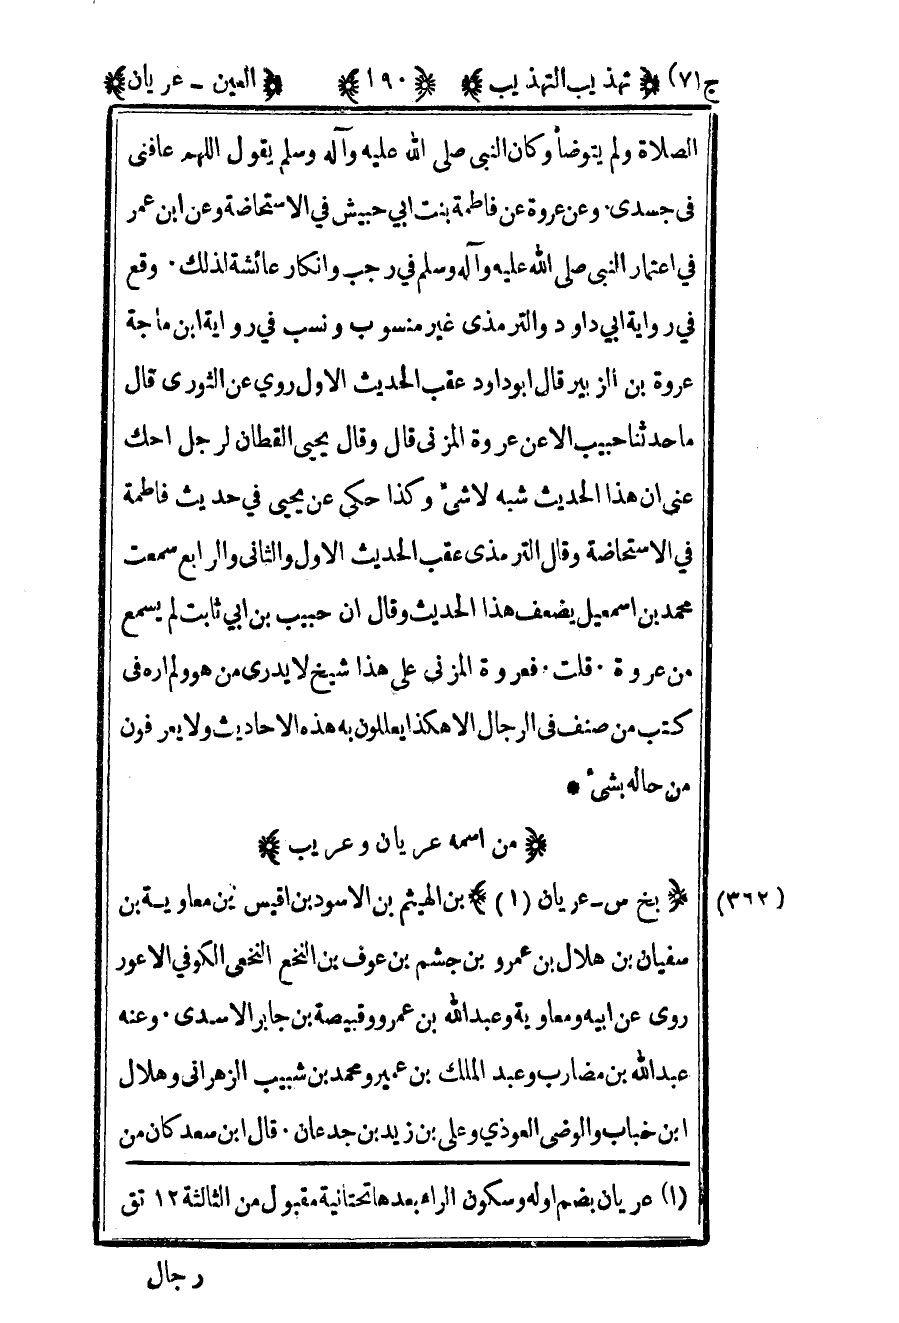 ج(٧) ﴿ تهذيب التهذيب ﴾ ﴿ ١٩٠ ﴾ ﴿ العين - عريان ﴾
الصلاة ولم يتوضأ وكان النبى صلى الله عليه وآله وسلم يقول اللهم عافنى
فى جسدى . وعن عروة عن فاطمة بنت ابي حبيش في الاستحاضة وعن ابن عمر
في اعتمار النبى صلى الله عليه وآله وسلم في رجب وانكار عائشة لذلك . وقع
في رواية ابي داود والترمذى غير منسوب ونسب في رواية ابن ماجة
عروة بن الزبير قال ابو داود عقب الحديث الاول روي عن الثورى قال
ما حدثنا حبيب الا عن عروة المزنى قال وقال يحيى القطان لرجل احك
عني ان هذا الحديث شبه لا شئ وكذا حكى عن يحيى في حديث فاطمة
في الاستحاضة وقال الترمذى عقب الحديث الاول والثانى والرابع سمعت
محمد بن اسمعيل يضعف هذا الحديث وقال ان حبيب بن ابي ثابت لم يسمع
من عروة . قلت . فعروة المزني على هذا شيخ لا يدرى من هو ولم اره فى
كتب من صنف فى الرجال الا هكذا يعللون به هذه الاحاديث ولا يعرفون
من حاله بشئ *
﴿ من اسمه عريان وعريب ﴾
(٣٦٢) ﴿ بخ س - عريان (١) ﴾ بن الهيثم بن الاسود بن اقيس بن معاوية بن
سفيان بن هلال بن عمرو بن جشم بن عوف بن النخع النخعى الكوفي الاعور
روى عن ابيه ومعاوية وعبد الله بن عمرو وقبيصة بن جابر الاسدى . وعنه
عبد الله بن مضارب وعبد الملك بن عمير ومحمد بن شبيب الزهرانى وهلال
ابن خباب والوضى العوذي وعلى بن زيد بن جدعان . قال ابن سعد كان من
(١) عريان بضم اوله وسكون الراء بعدها تحتانية مقبول من الثالثة ١٢ تق
رجال